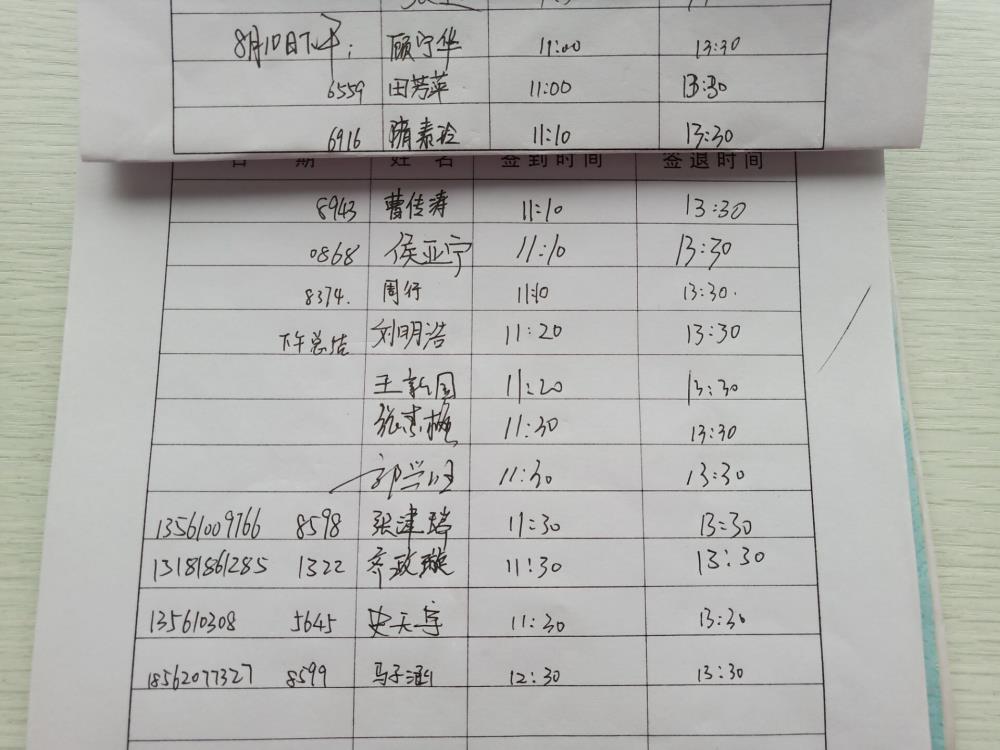 8月10日下午: 顾宁华 11:00 13:30
6559 田芳萍 11:00 13:30
6916 隋素玲 11:10 13:30
日 期 姓 名 签到时间 签退时间
8943 曹传涛 11:10 13:30
0868 侯亚宁 11:10 13:30
8374. 周行 11:10 13:30.
下午总结 刘明浩 11:20 13:30
王新国 11:20 13:30
张 11:30 13:30
郭兴旺 11:30 13:30
13561009766 8598 张津瑞 11:30 13:30
13181861285 1322 齐政璇 11:30 13:30
135610308 5645 史天宇 11:30 13:30
18562077327 8599 马子涵 12:30 13:30